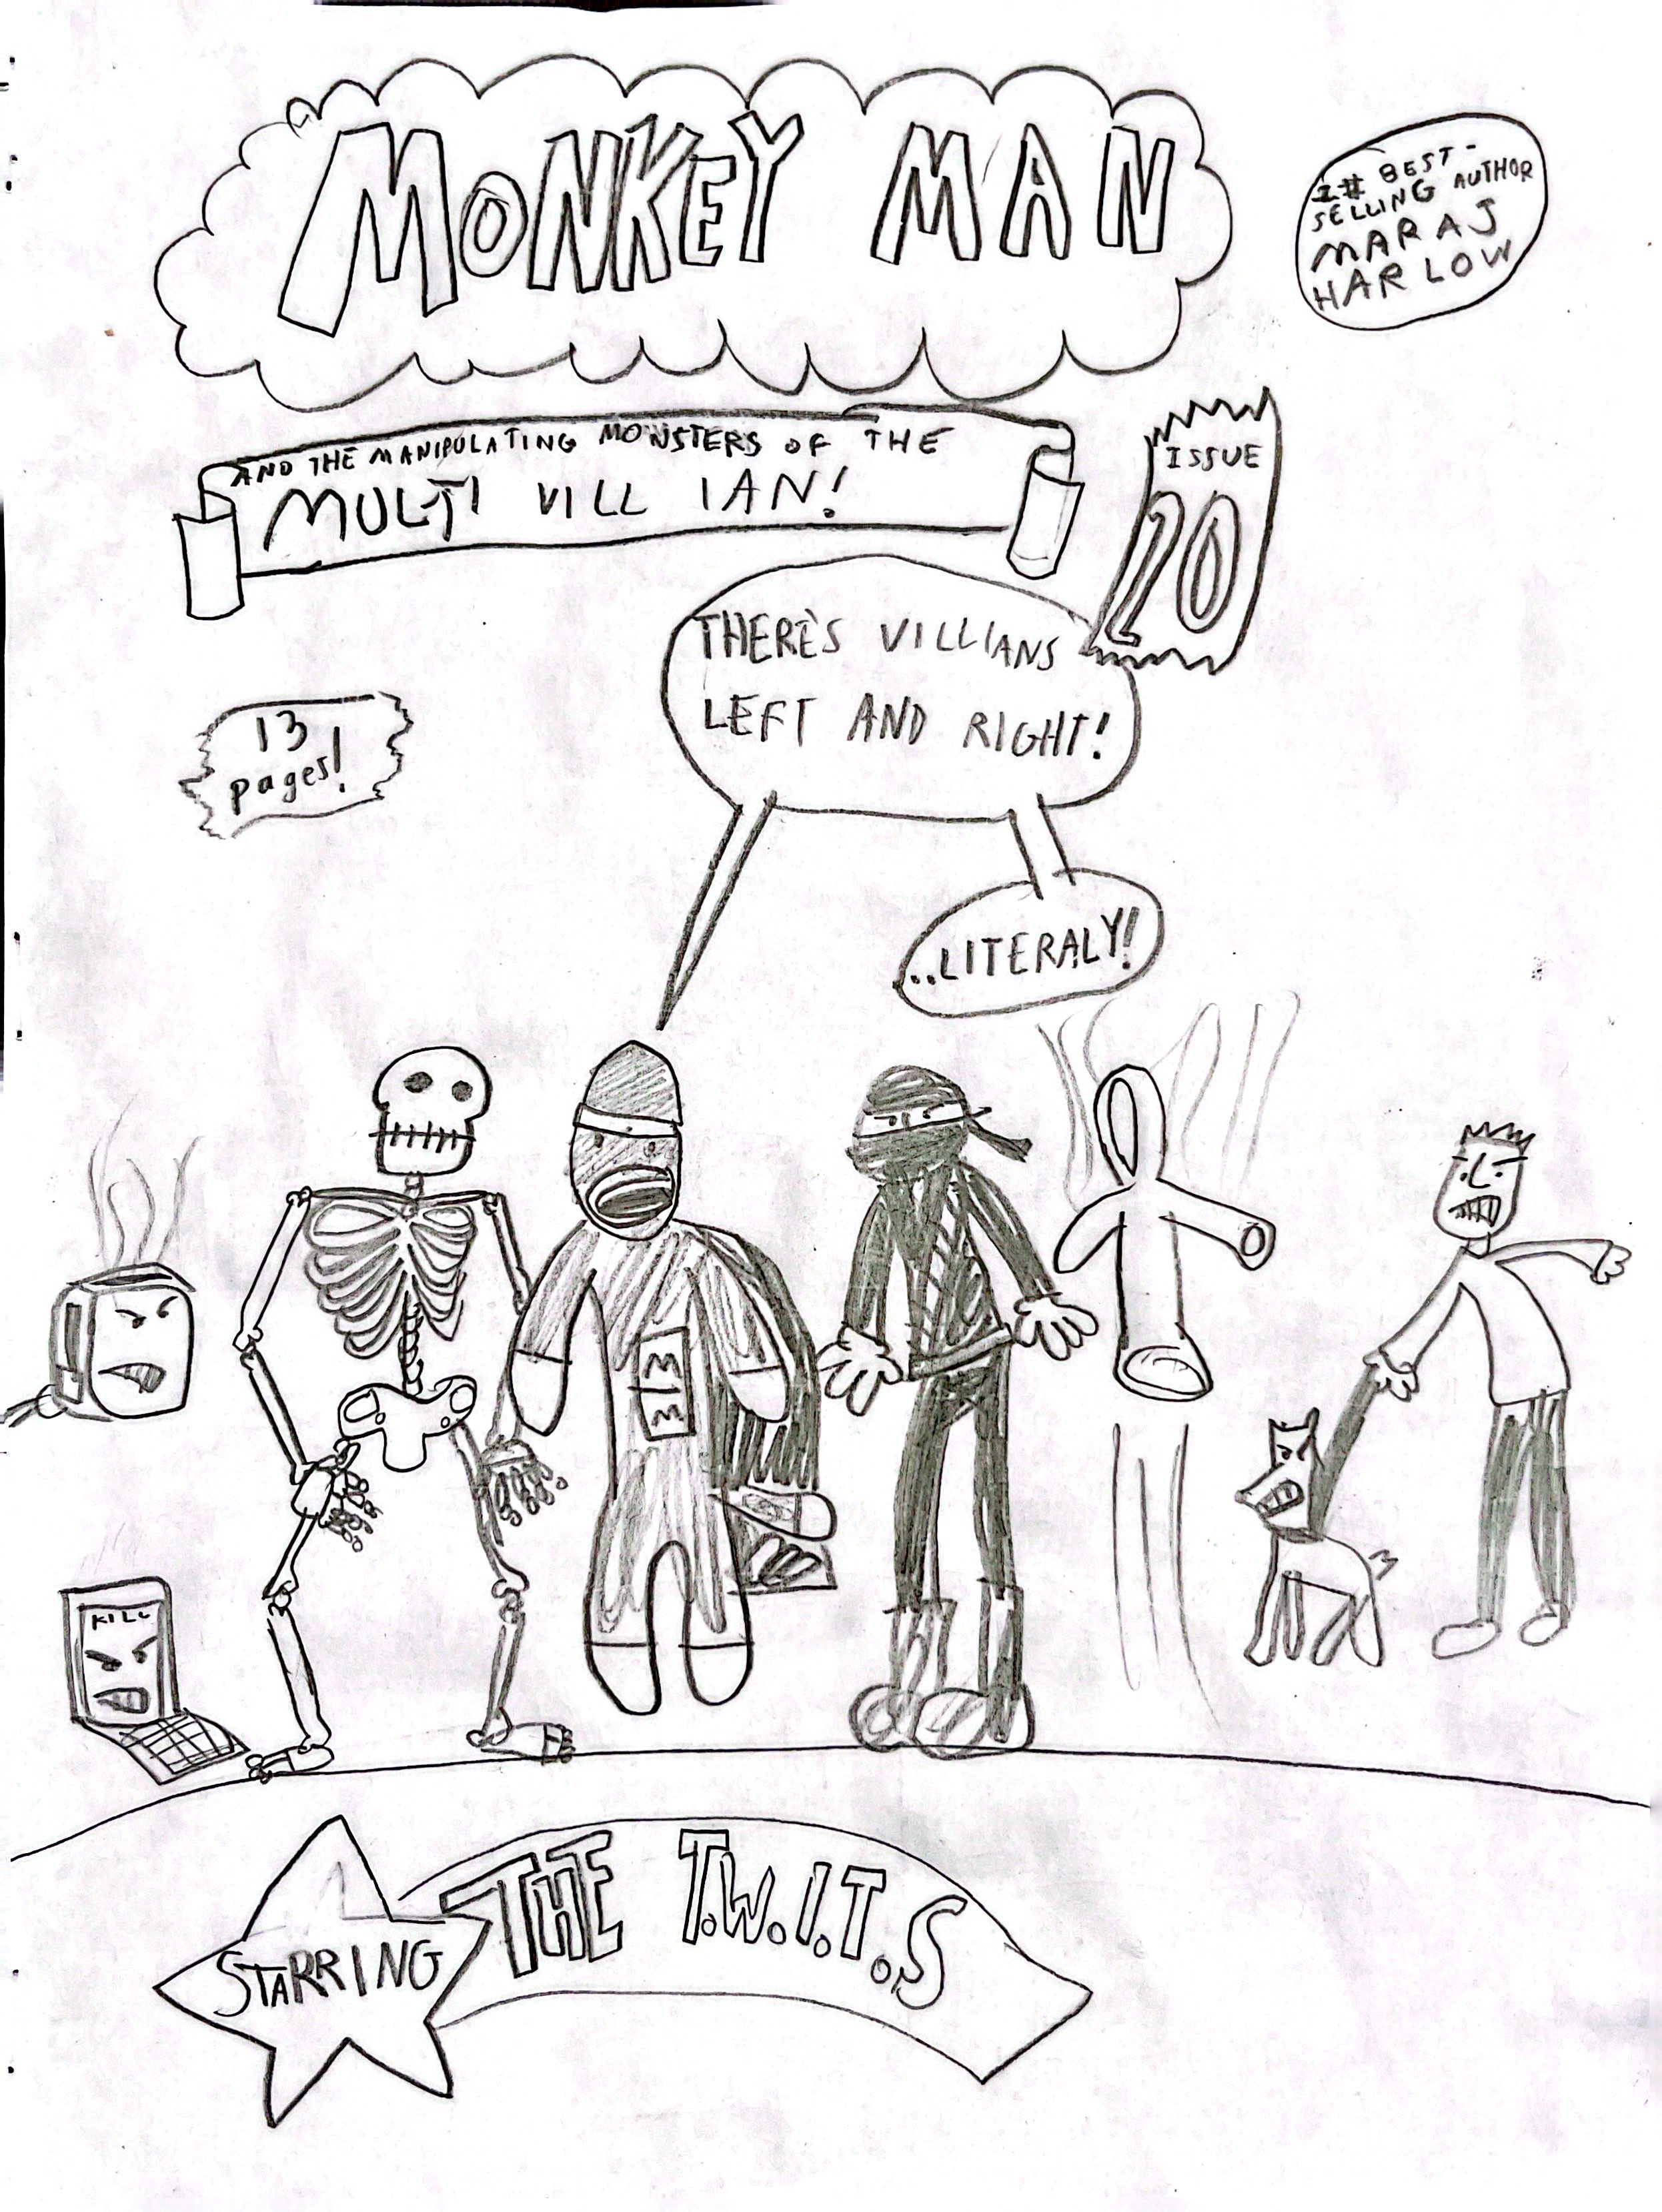 MONKEY MAN
1# BEST-
SELLING AUTHOR
MARAJ
HARLOW
AND THE MANIPULATING MONSTERS OF THE
MULTI VILL IAN!
ISSUE
20
THERE'S VILLIANS
LEFT AND RIGHT!
13
pages!
..LITERALY!
MM
KILL
STARRING
THE T.W.I.T.S